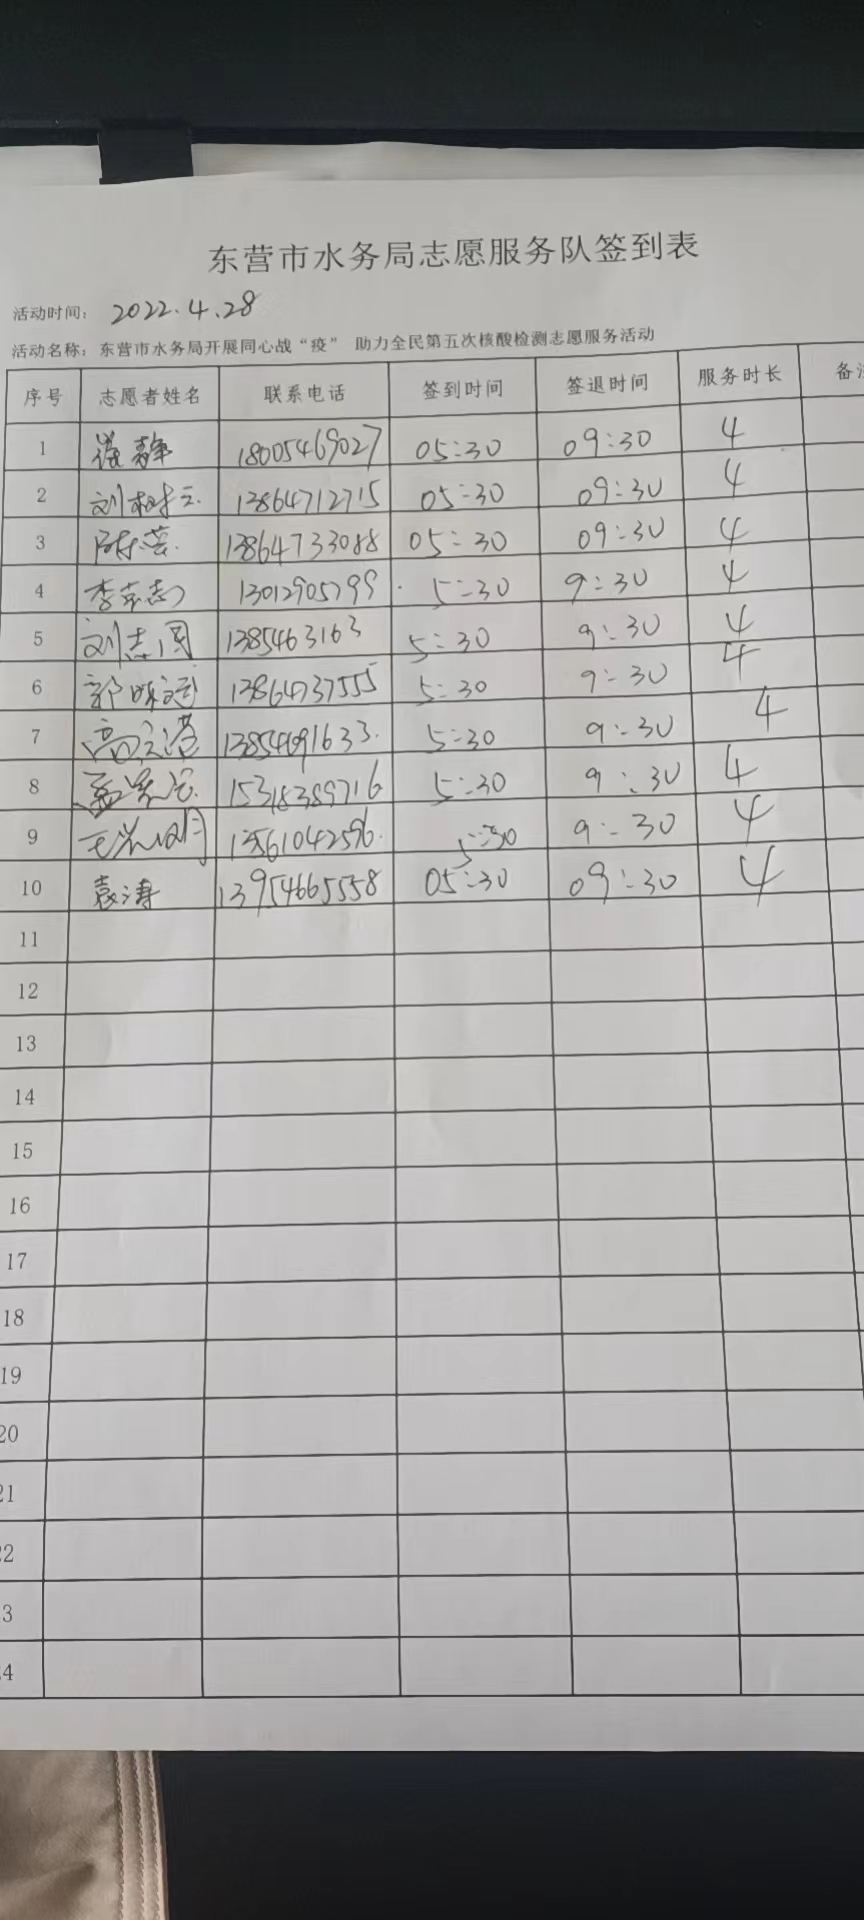 东营市水务局志愿服务队签到表
活动时间: 2022.4.28
活动名称: 东营市水务局开展同心战“疫” 助力全民第五次核酸检测志愿服务活动
序号 志愿者姓名 联系电话 签到时间 签退时间 服务时长 备注
1 静 18005469027 05:30 09:30 4
2 刘树 13864712715 05:30 09:30 4
3 陈芸 13864733088 05:30 09:30 4
4 李 13012905799 5:30 9:30 4
5 刘志 1385463163 5:30 9:30 4
6 郭 13864737555 5:30 9:30 4
7 高 13854691633 5:30 9:30 4
8 孟 15318389716 5:30 9:30 4
9 王 明 13561042596 5:30 9:30 4
10 袁涛 13954665558 05:30 09:30 4
11
12
13
14
15
16
17
18
19
20
21
22
3
4